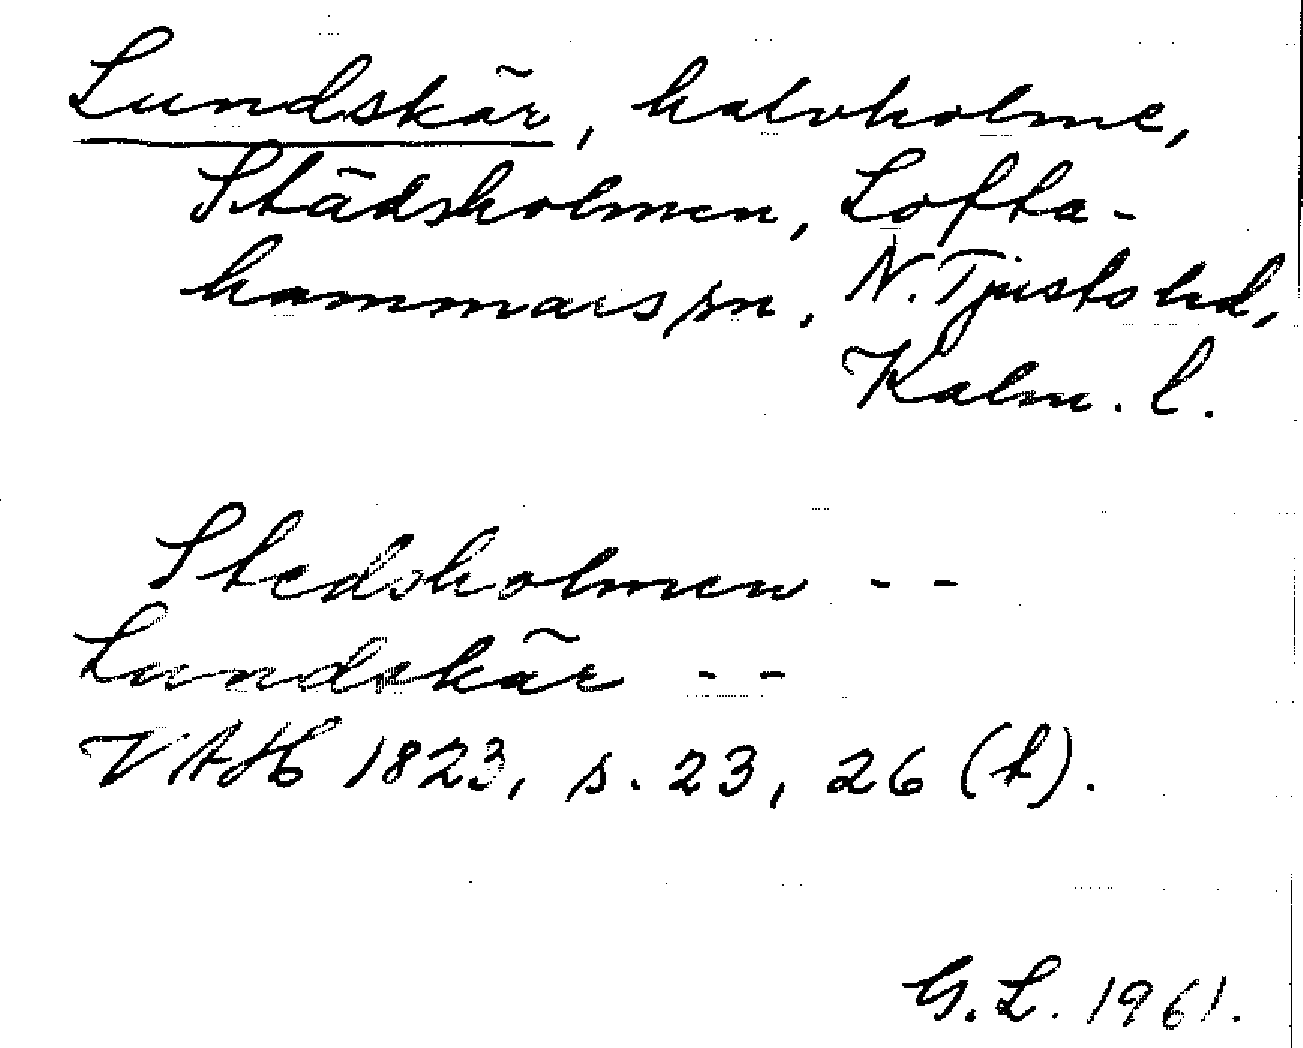 Lundskär, halvholme,
Städsholmen, Lofta-
hammars sn, N. Tjusts hd,
Kalm. l.
Stedsholmen - -
Lundskär - -
VAH 1823, s. 23, 26 (t).
G. L. 1961.